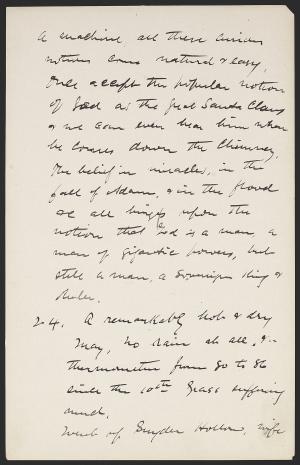 a machine all these curious
notions come natural & easy.
Once accept the popular notion
of God as the great Santa Claus
& we can even hear him when
he comes down the Chimney.
The belief in miracles, in the
fall of Adam, & in the flood
all hinges upon the
notion that God is a man, a
man of gigantic powers, but
still a man, a Sovereign King &
Ruler.
24. A remarkably hot & dry
May, no rain at all, &
thermometer from 80 to 86
since the 10th Grass suffering
much.
Went up Snyder Hollow, wife